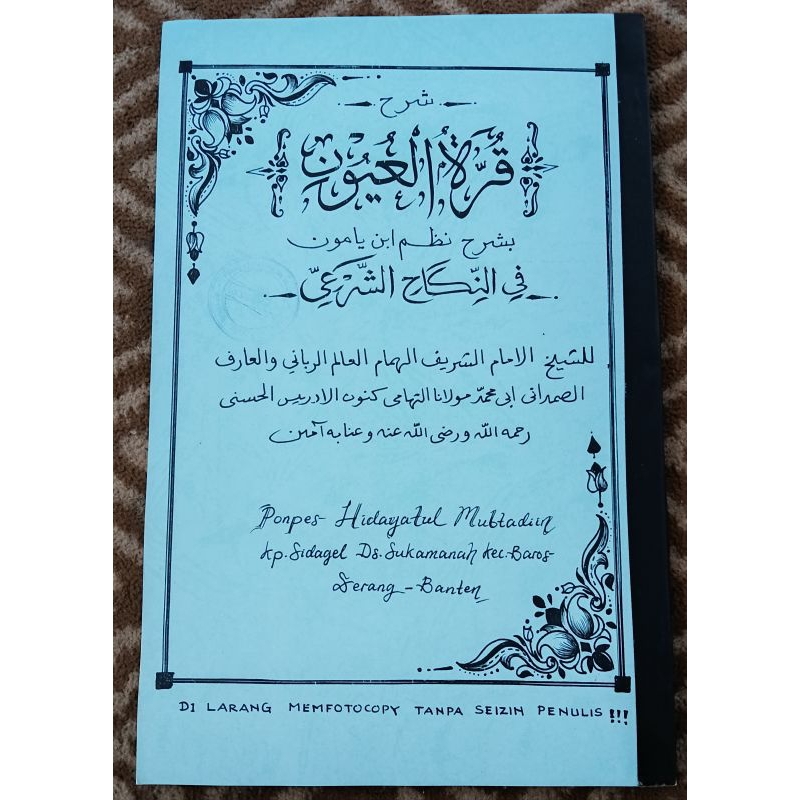 شرح
قُرَّةُ الْعُيُوْنِ
بشرح نظم ابن يامون
فِي النِّكَاحِ الشَّرْعِيّ
للشيخ الامام الشريف الهمام العالم الرباني والعارف
الصمدانى ابى محمّد مولانا التهامى كنون الادريس الحسنى
رحمه اللّه ورضى اللّه عنه وعنابه آمين
Ponpes Hidayatul Mubtadiin
Kp. Sidagel Ds. Sukamanah Kec. Baros
Serang - Banten
DI LARANG MEMFOTOCOPY TANPA SEIZIN PENULIS !!!